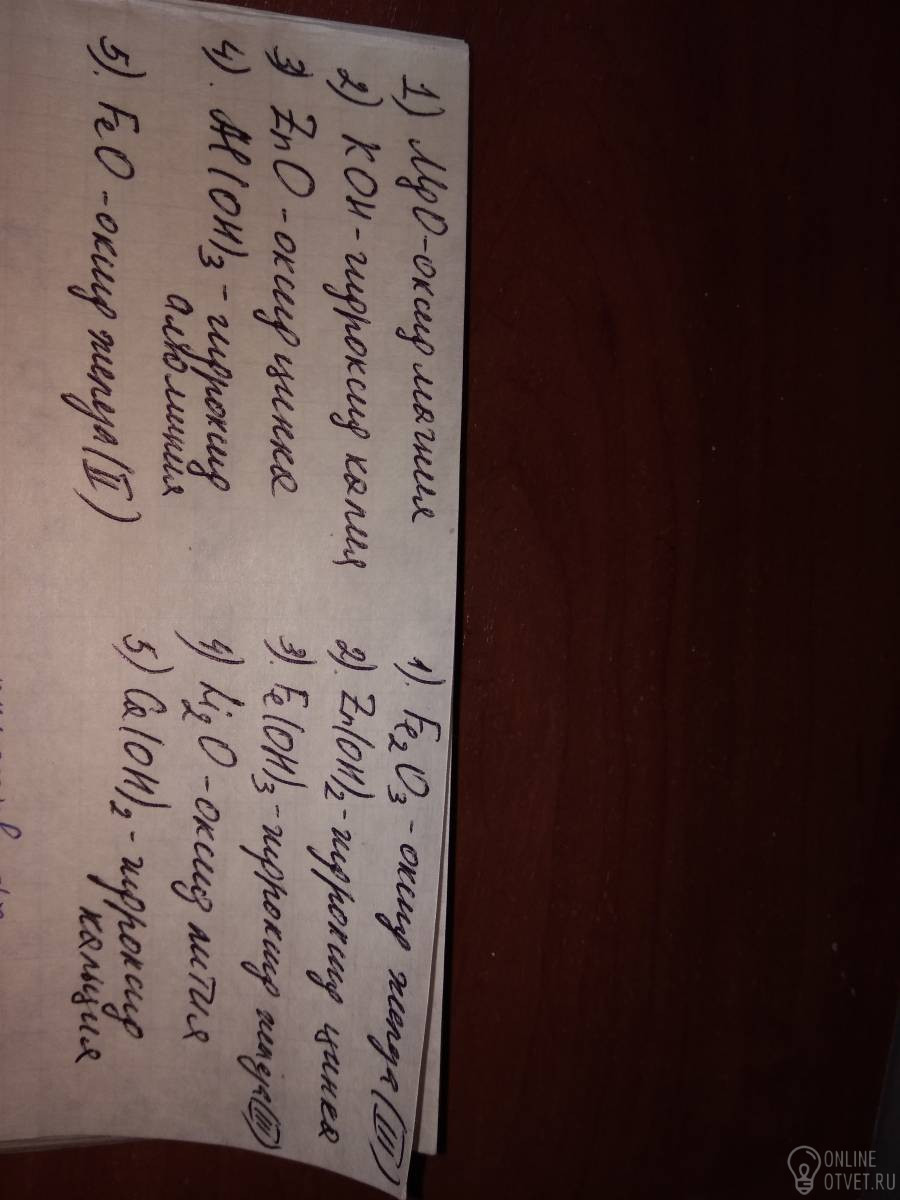 1) MgO - оксид магния
2) KOH - гидроксид калия
3) ZnO - оксид цинка
4). Al(OH)3 - гидроксид
алюминия
5). FeO - оксид железа (II)
1). Fe2O3 - оксид железа (III)
2). Zn(OH)2 - гидроксид цинка
3). Fe(OH)3 - гидроксид железа (III)
4) Li2O - оксид лития
5) Ca(OH)2 - гидроксид
кальция
ONLINE
OTVET.RU